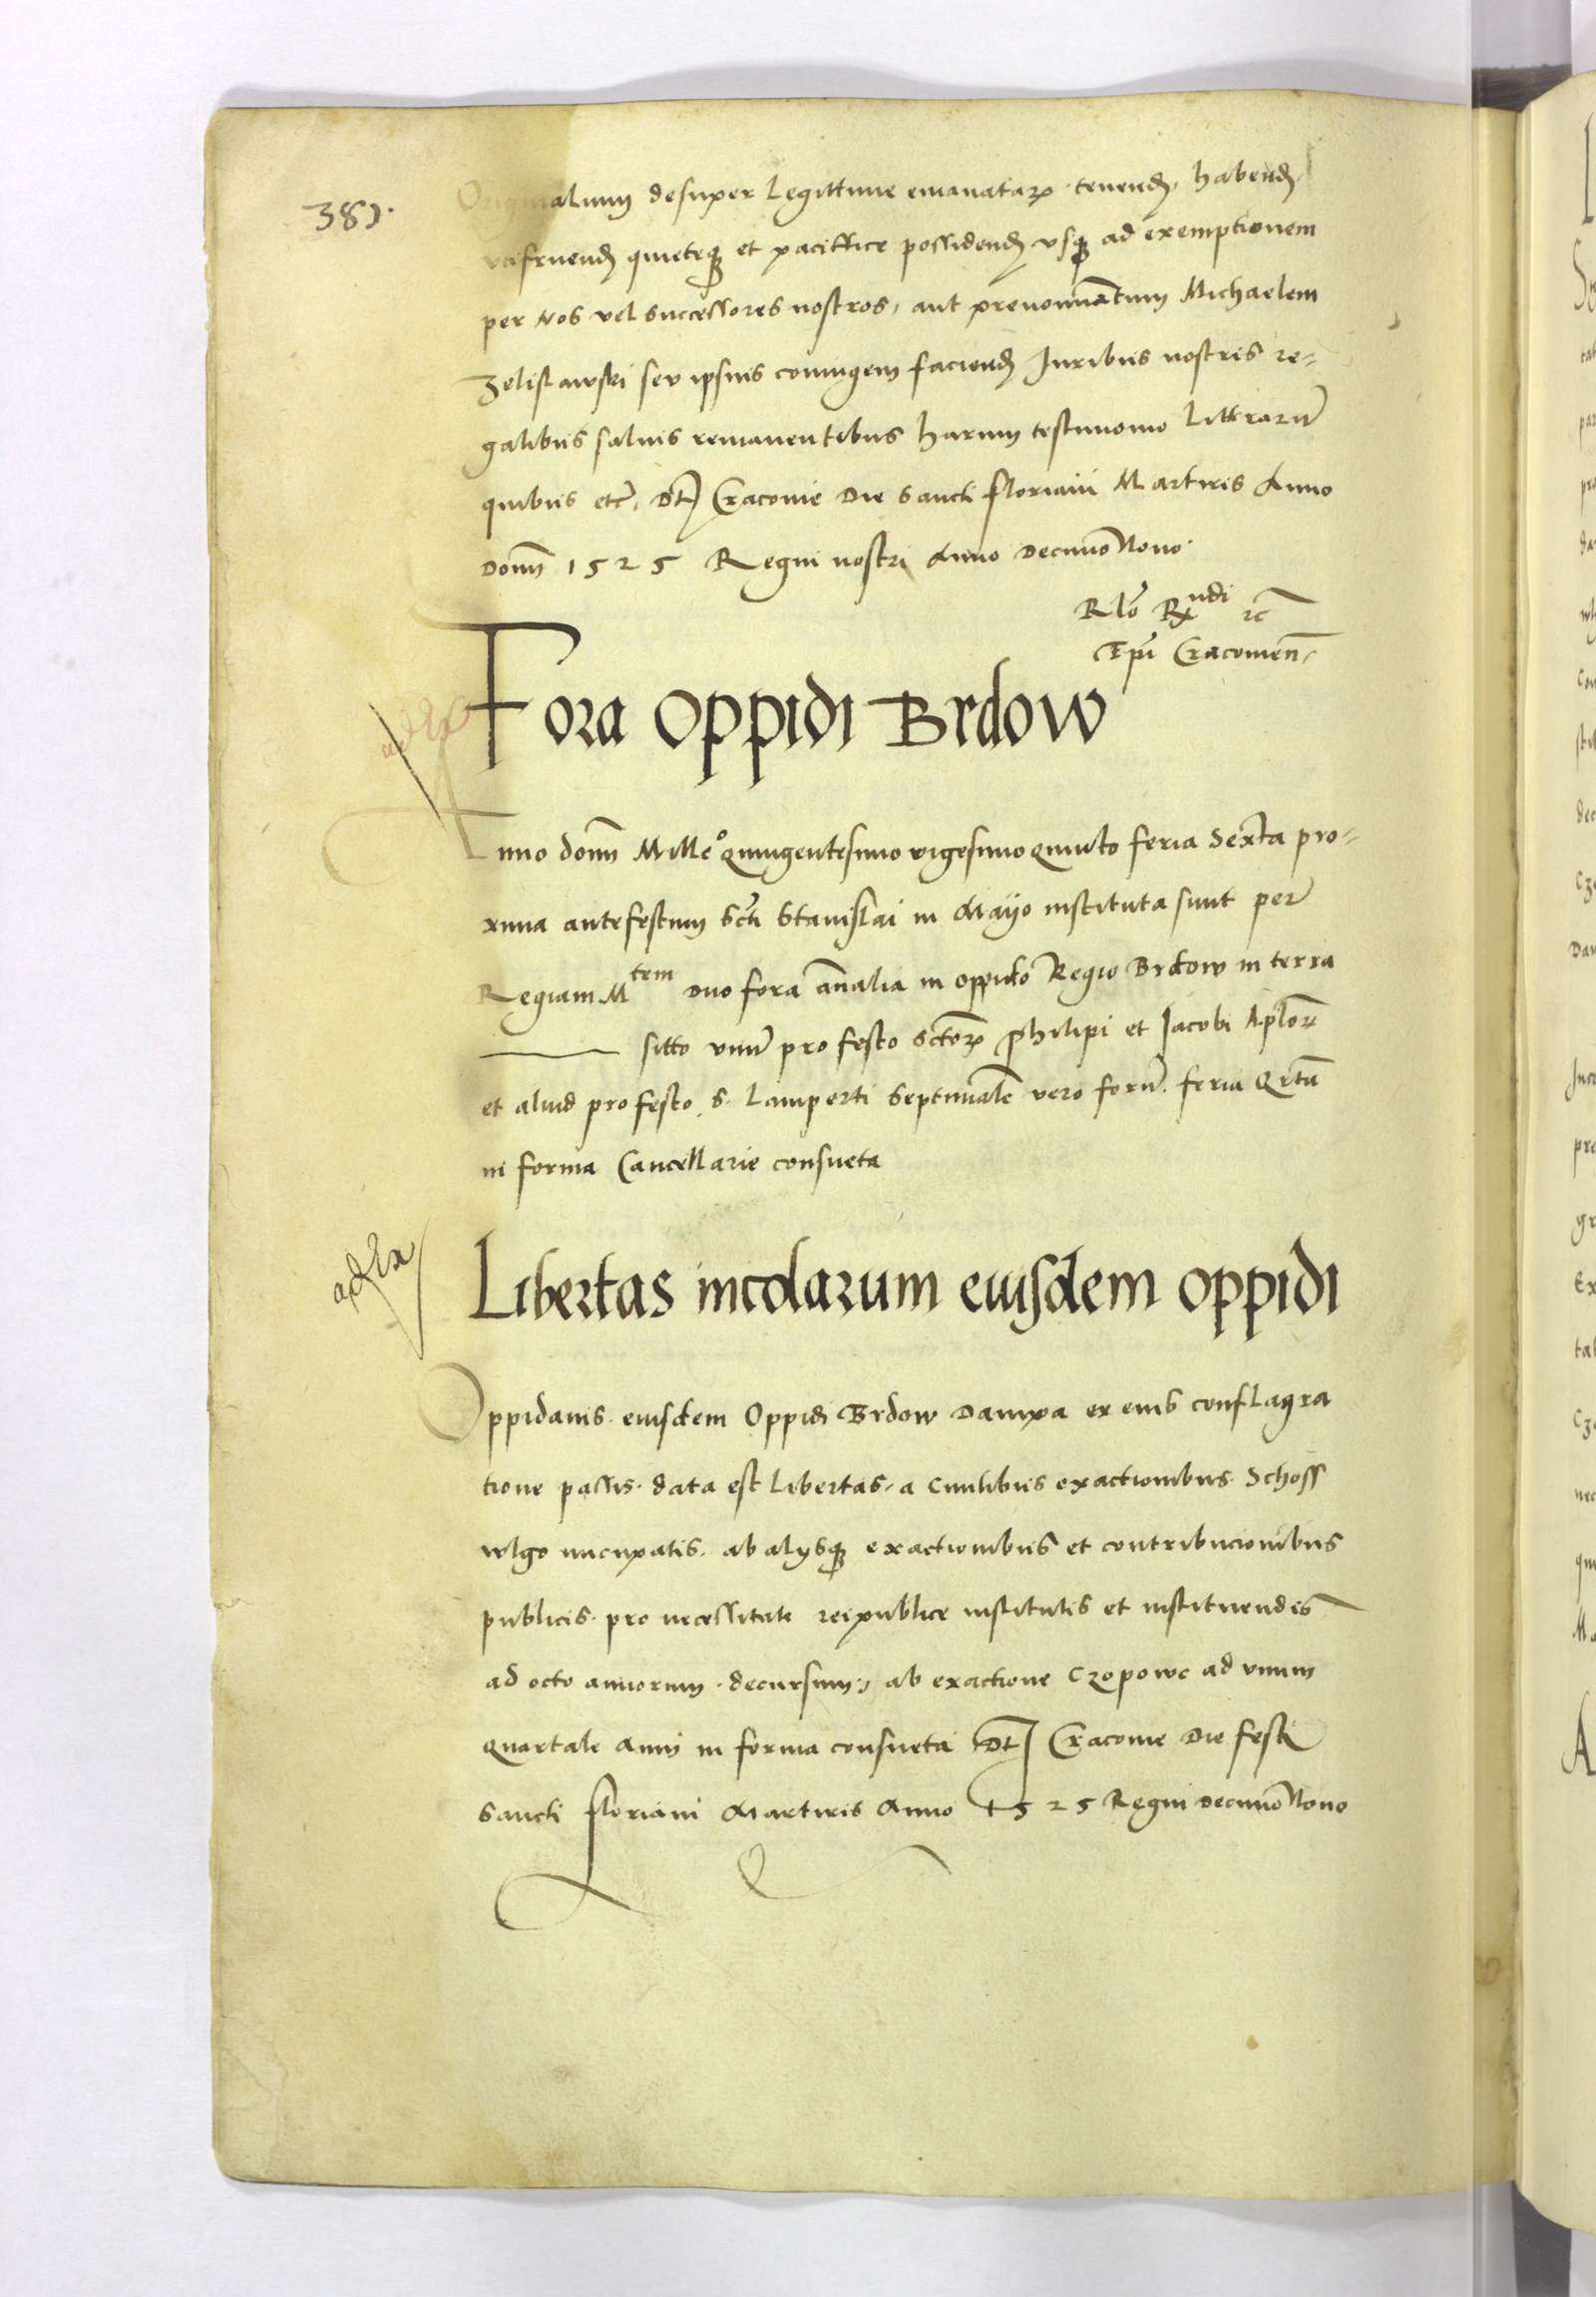 389.
Originalium desuper legittime emanatarꝝ tenendꝭ habendꝭ
vtifruendꝭ quieteqꝫ et paciffice possidendꝭ vsqꝫ ad exemptionem
per Nos vel successores nostros, aut prenoiatum Michaelem
Zelislawski seu ipsius coniugem faciendꝭ Iuribus nostris re-
galibus saluis remanentibus harum testimonio litterarũ
quibus etc̃, Dt̃ Cracouie Die Sancti floriani Martiris Anno
Domĩ 1525 Regni nostri Anno Decimo Nono.
Rlõ Rndi ꝛc̃
Epĩ Cracouien̄
ad Ex
Fora Oppidi Brdow
Anno domĩ Mille° Quingentesimo vigesimo Quinto feria Sexta pro-
xima ante festum Scti Stanislai in Mayo instituta sunt per
Regiam Mtem duo fora ãnalia in oppido Regio Brdow in terra
sitto vnũ pro festo Sctorꝝ Philipi et Iacobi Aplorꝝ
et aliud pro festo S. Lamperti Septimalẽ vero forũ. feria Qrtã
in forma Cancellarie consueta
ad Ex
Libertas incolarum eiusdem oppidi
Oppidanis eiusdem Oppidi Brdow Dampna ex eius conflagra
tione passis data est libertas, a Ciuilibus exactionibus Schoss
wlgo nucupatis ab alysqꝫ exactionibus et contribucionibus
publicis pro necessitate reipublice institutis et instituendis
ad octo annorum decursum, ab exactione Czopowe ad vnum
quartale Anni in forma consueta Dt̃ Cracouie Die festi
Sancti floriani Martiris Anno 1525 Regni Decimo Nono